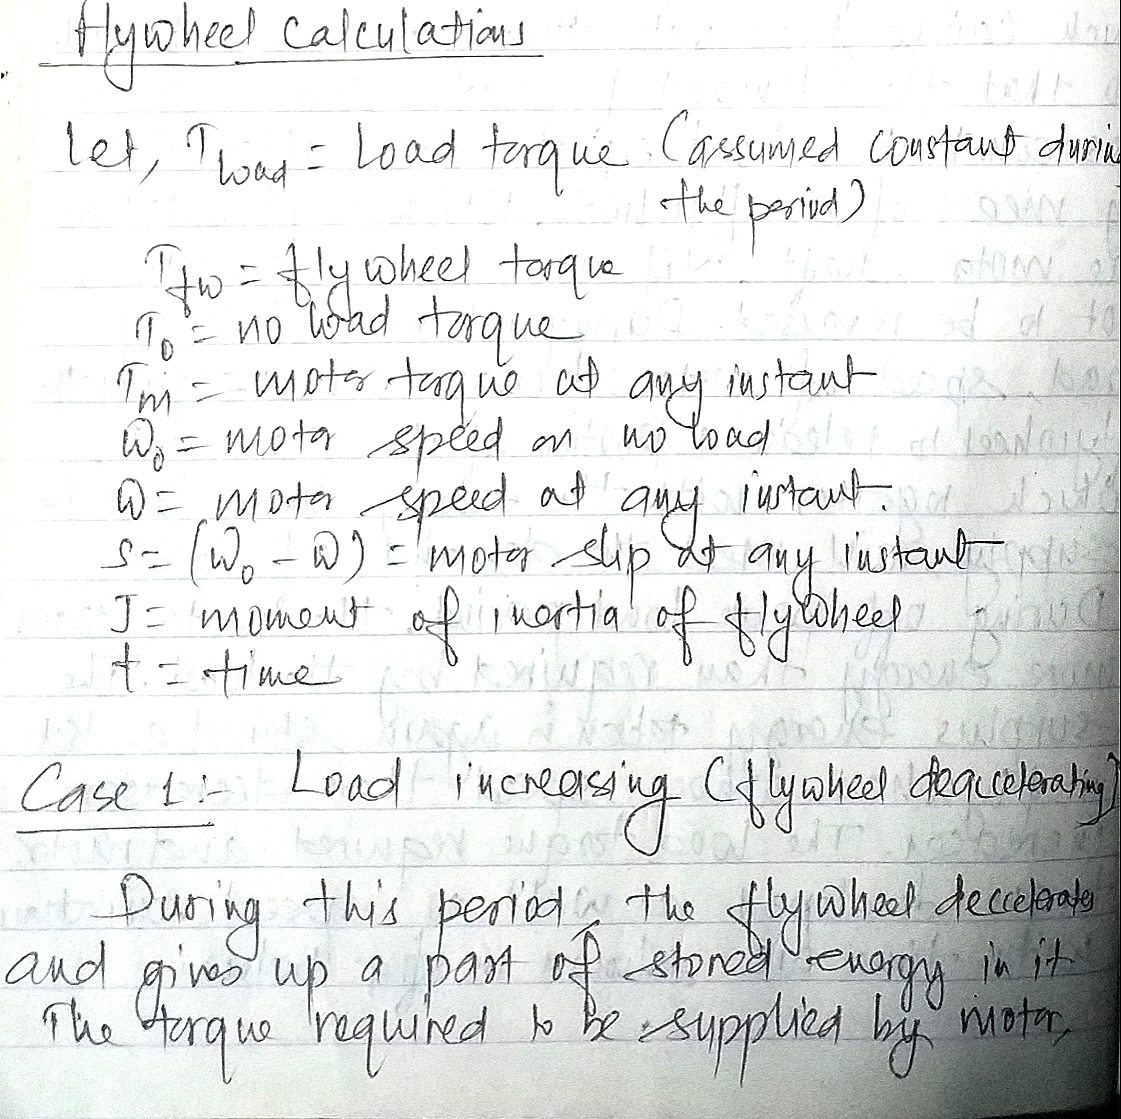 Flywheel Calculations
Let, T load = Load torque (assumed constant durin
the period)
T fw = flywheel torque
T0 = no load torque
Tm = motor torque at any instant
ω0 = motor speed on no load
ω = motor speed at any instant.
s = (ω0 - ω) = motor slip at any instant
J = moment of inertia of flywheel
t = time
Case 1:- Load increasing (flywheel deaccelerating)
During this period, the flywheel deccelerates
and gives up a part of stored energy in it
The torque required to be supplied by motor,